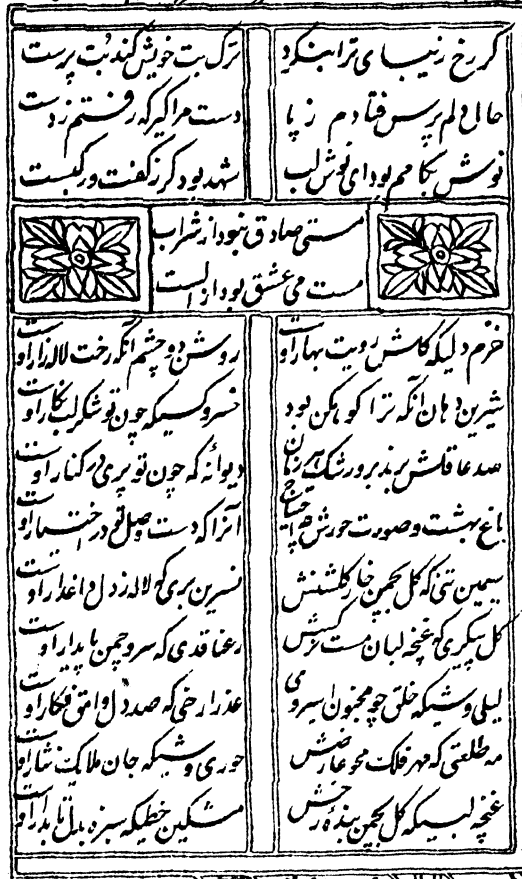 گر رخ زیبای ترا بنگرد ترک بت خویش کند بت پرست
حال دلم پرس فتادم ز پا دست مرا گیر که رفتم ز دست
نوش بکامم بود ای نوش لب شهد بود گر ز کفت ور کبست
مستی صادق نبود از شراب
مست می عشق بود از الست
خرم دلیکه گلشن رویت بهار اوست روشن دو چشم آنکه رخت لاله زار اوست
شیرین دهان آنکه ترا کوهکن بود خسرو کسیکه چون تو شکر لب نگار اوست
صد عاقلش برند برو رشک هر زمان دیوانه که چون تو پری در کنار اوست
باغ بهشت و صورت حورش چه احتیاج آنرا که دست وصل تو در اختیار اوست
سیمین تنی که گل بچمن خار گلشنش نسرین بری که لاله ز دل داغدار اوست
گل پیکری که غنچه لبان مست نرگسش رعنا قدی که سرو چمن پایدار اوست
لیلی وشیکه خلق چو مجنون اسیر وی عذرا رخی که صد دل وامق فکار اوست
مه طلعتی که مهر فلک محو عارضش حوری وشیکه جان ملایک نثار اوست
غنچه لبیکه گل بچمن بنده رخش مشکین خطیکه سبزه بدل تابدار اوست